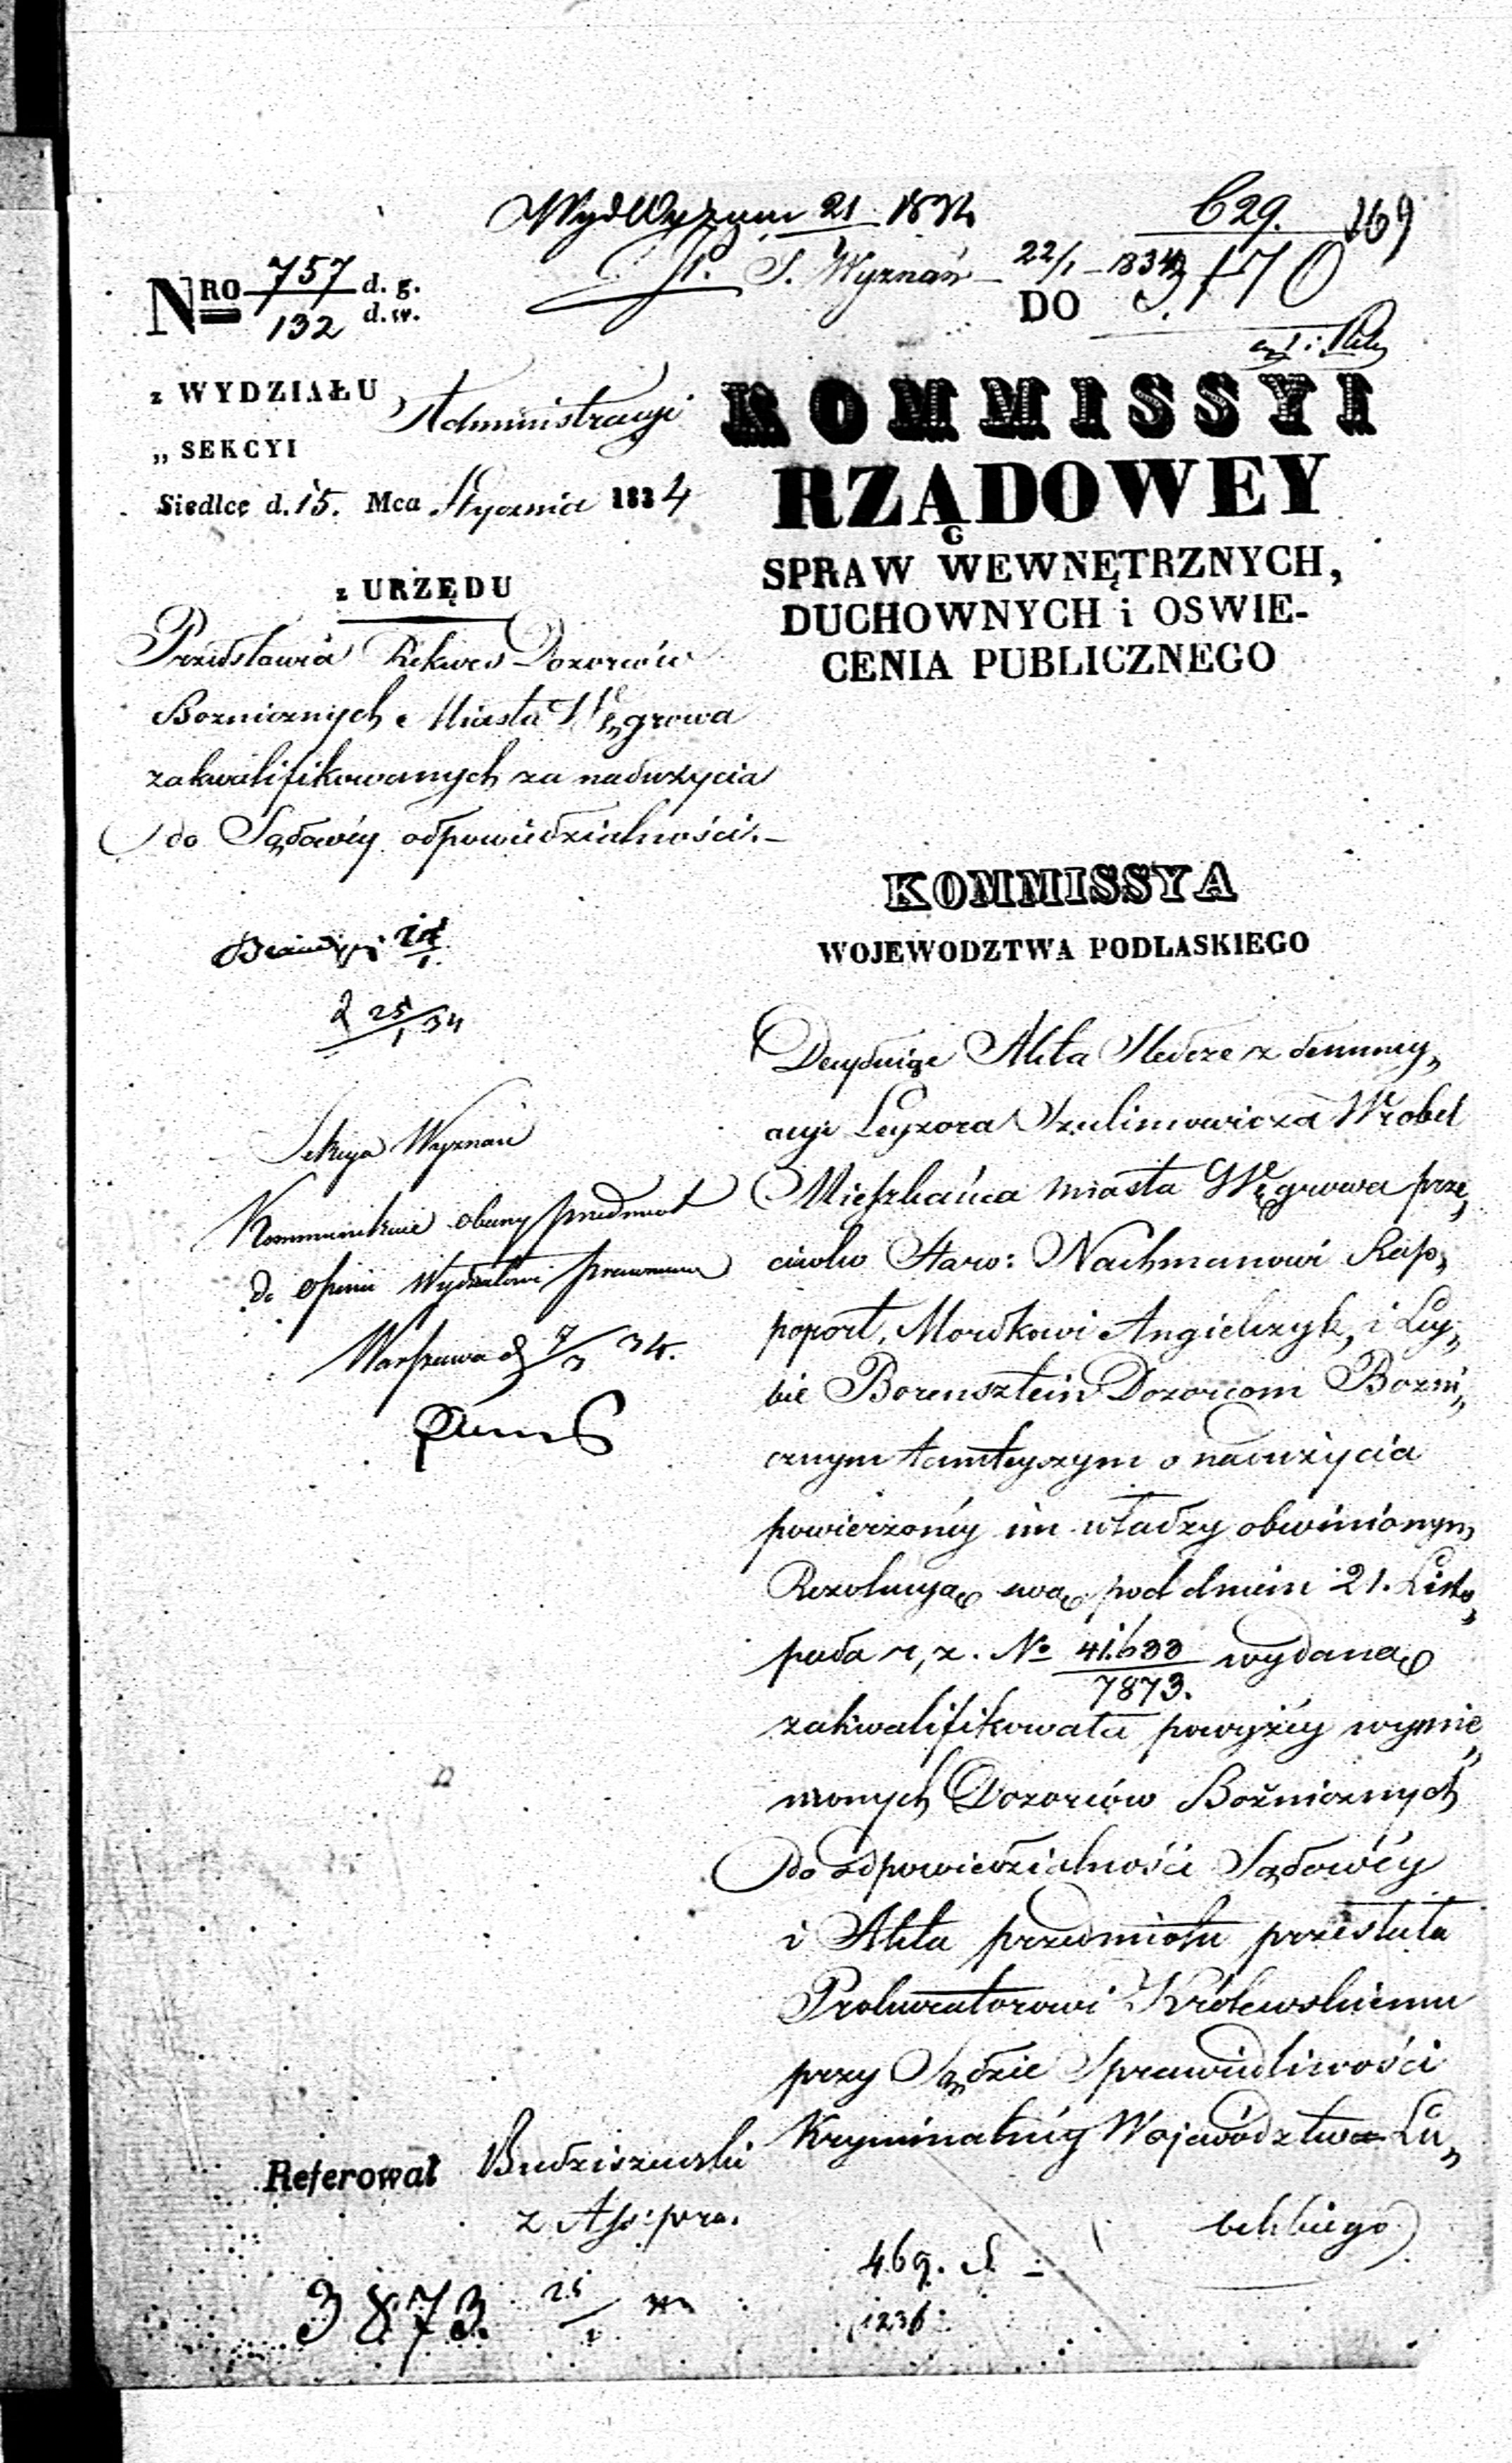 629. 169
WydWyznan 21 1834
S. Wyznań 22/1 – 1834
NRO 757 d. g.
132 d. w.
DO 3170
z WYDZIAŁU Administracyi
„ SEKCYI
Siedlce d. 15. Mca Stycznia 1834
KOMMISSYI
RZĄDOWEY
SPRAW WEWNĘTRZNYCH,
DUCHOWNYCH i OSWIE-
CENIA PUBLICZNEGO
z URZĘDU
Przedstawia Rekurs Dozorców
Boznicznych Miasta Węgrowa
zakwalifikowanych za nadużycia
do Sądowéy odpowiedzialności. –
25/1 34
Sekcya Wyznań
Kommunikuie obecny przedmiot
do opinii Wydziałowi prawnemu
Warszawa d 7/3 34.
KOMMISSYA
WOJEWODZTWA PODLASKIEGO
Decyduiąc Akta Sledcze z denuncy„
acyi Leyzora Szulimowicza Wrobel
Mieszkańca miasta Węgrowa prze„
ciwko Staro: Nachmanowi Rap„
poport, Mordkowi Angielczyk, i Ley„
bie Borensztein Dozorcom Bozni„
cznym tamteyszym o nadużycia
powierzonéy im władzy obwinionym,
Rezolucyą swą pod dniem 21. Listo„
pada r, z. No 41.633/7873. wydaną
zakwalifikowała powyżéy wymie„
nionych Dozorców Bożnicznych
do odpowiedzialności Sądowéy
i Akta przedmiotu przesłała
Prokuratorowi Królewskiemu
przy Sądzie Sprawiedliwości
Kryminalnéy Województwa Lu„
belskiego
Referował Budziszewski
z Ass: pra.
469.
1236
3873. 25/1